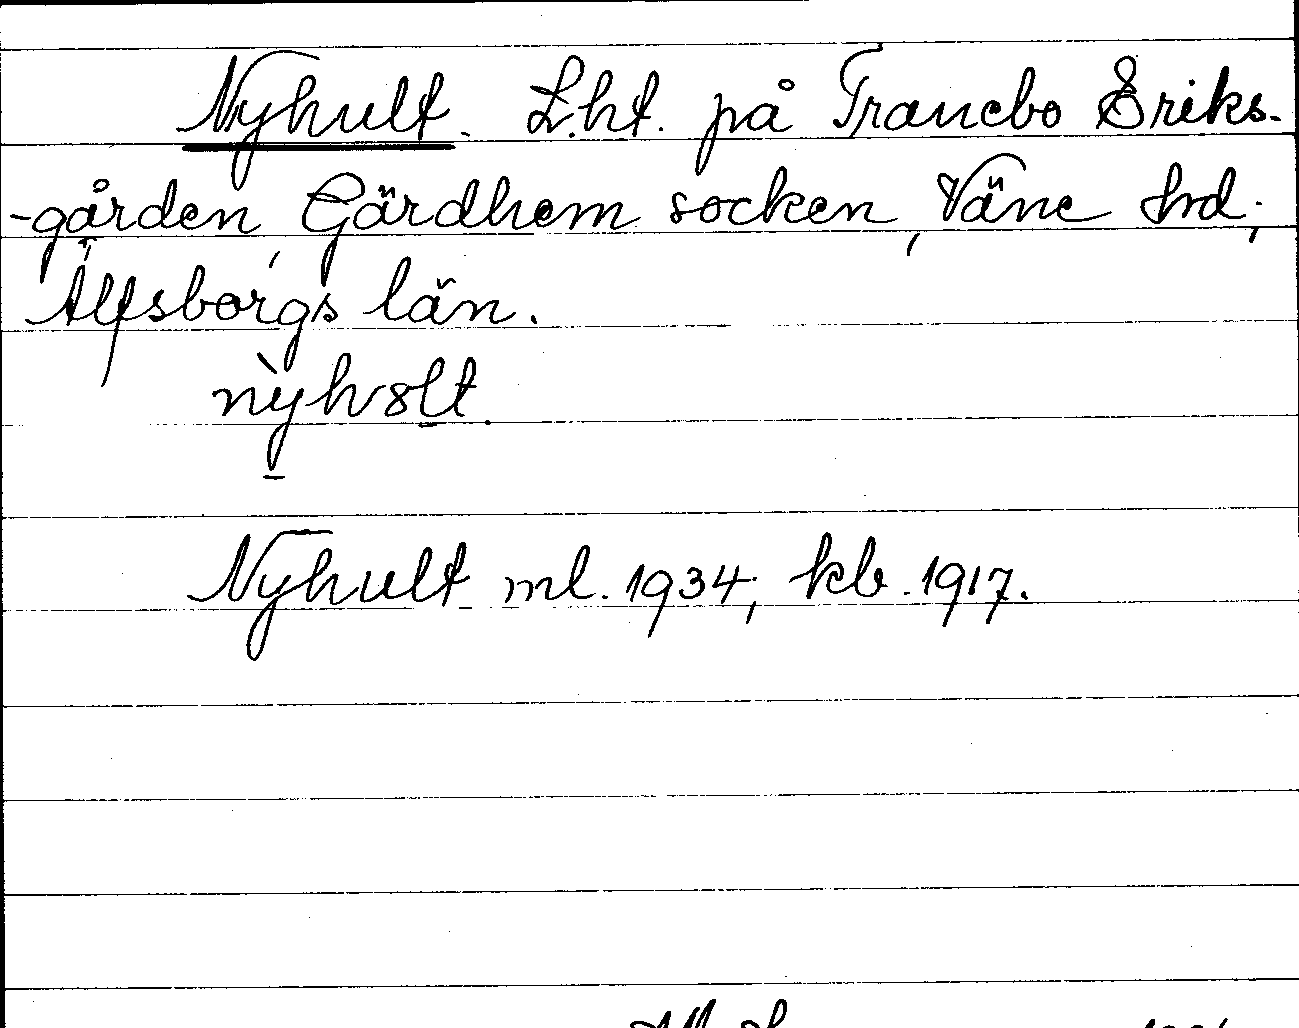 Nyhult. L.ht. på Tranebo Eriks-
-gården, Gärdhem socken, Väne hd;
Älfsborgs län.
nỳhv8lt.
Nyhult ml. 1934; kb. 1917.